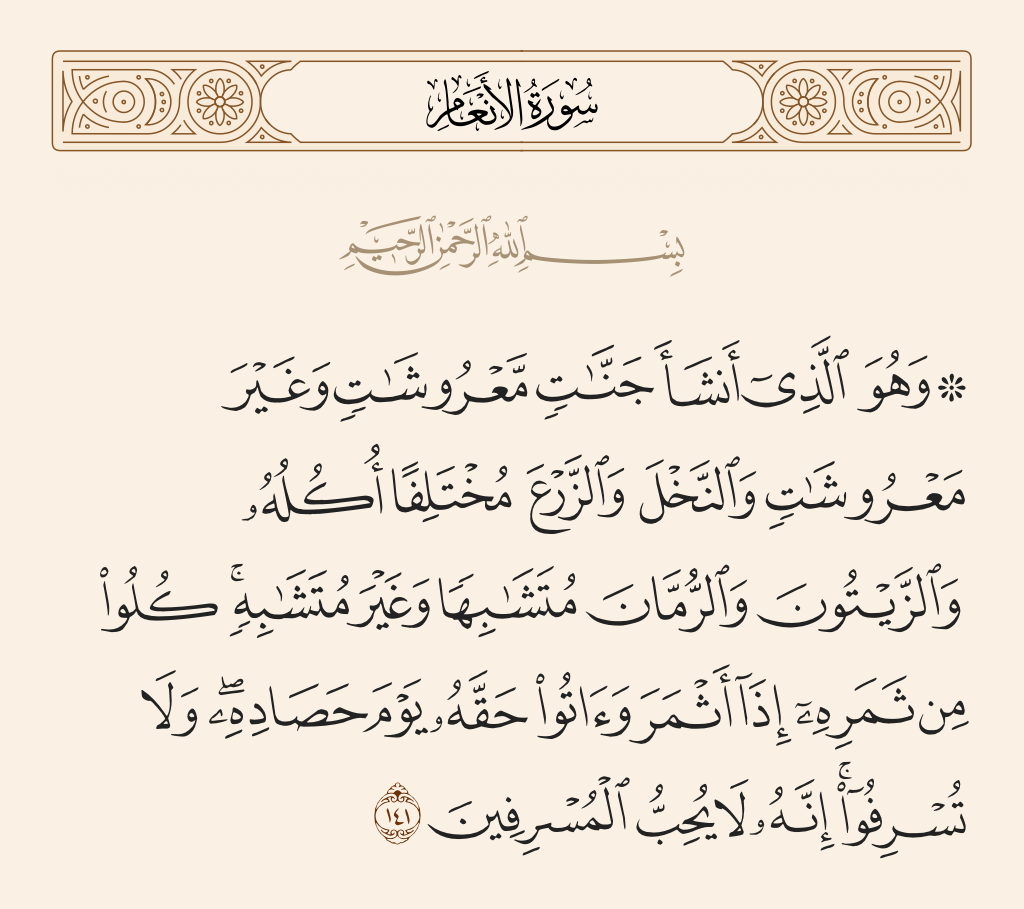 سُورَةُ الأَنْعَامِ
بِسْمِ ٱللَّهِ ٱلرَّحْمَٰنِ ٱلرَّحِيمِ
۞ وَهُوَ ٱلَّذِىٓ أَنشَأَ جَنَّـٰتٍ مَّعْرُوشَـٰتٍ وَغَيْرَ
مَعْرُوشَـٰتٍ وَٱلنَّخْلَ وَٱلزَّرْعَ مُخْتَلِفًا أُكُلُهُۥ
وَٱلزَّيْتُونَ وَٱلرُّمَّانَ مُتَشَـٰبِهًا وَغَيْرَ مُتَشَـٰبِهٍ ۚ كُلُوا۟
مِن ثَمَرِهِۦٓ إِذَآ أَثْمَرَ وَءَاتُوا۟ حَقَّهُۥ يَوْمَ حَصَادِهِۦ ۖ وَلَا
تُسْرِفُوٓا۟ ۚ إِنَّهُۥ لَا يُحِبُّ ٱلْمُسْرِفِينَ ١٤١